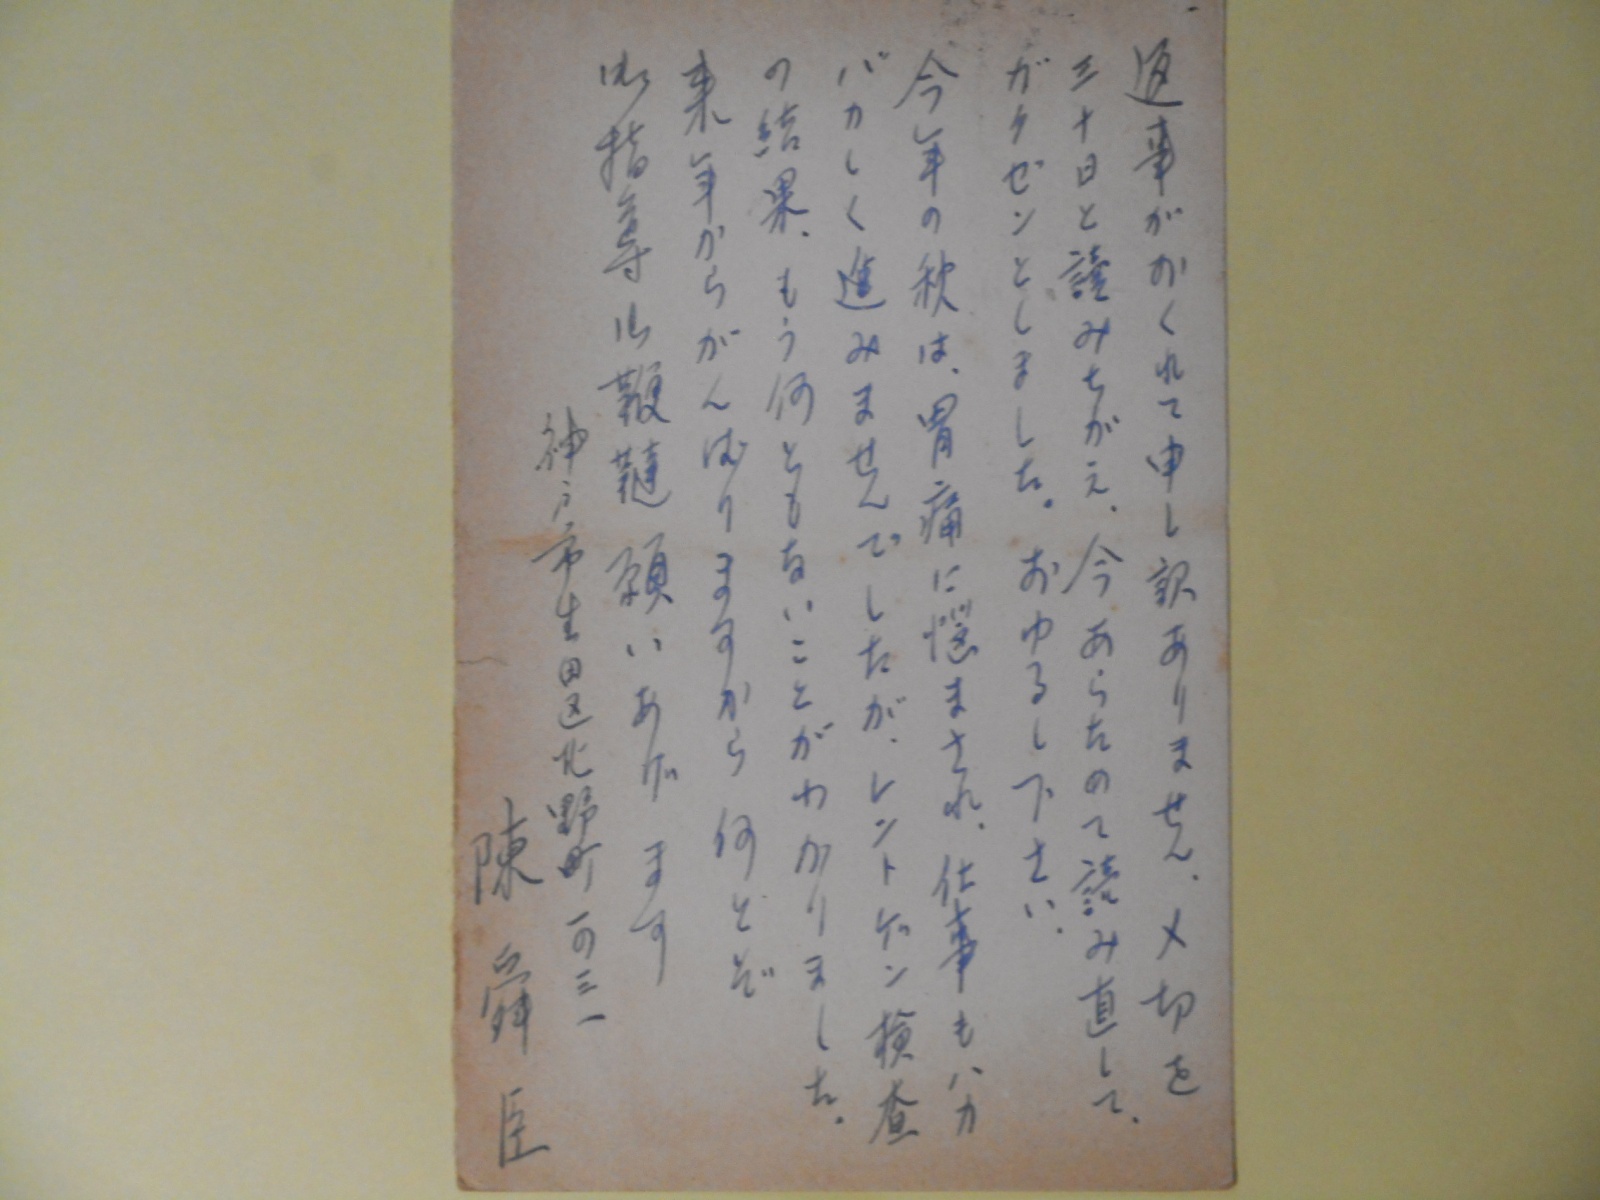 返事がおくれて申し訳ありません、〆切を
三十日と讀みちがえ、今あらためて読み直して、
ガクゼンとしました。おゆるし下さい、
今年の秋は、胃痛に悩まされ、仕事もハカ
バカしく進みませんでしたが、レントゲン検査
の結果、もう何ともないことがわかりました。
来年からがんばりますから何とぞ
御指導御鞭韃願いあげます
神戸市生田区北野町一の三一
陳舜臣